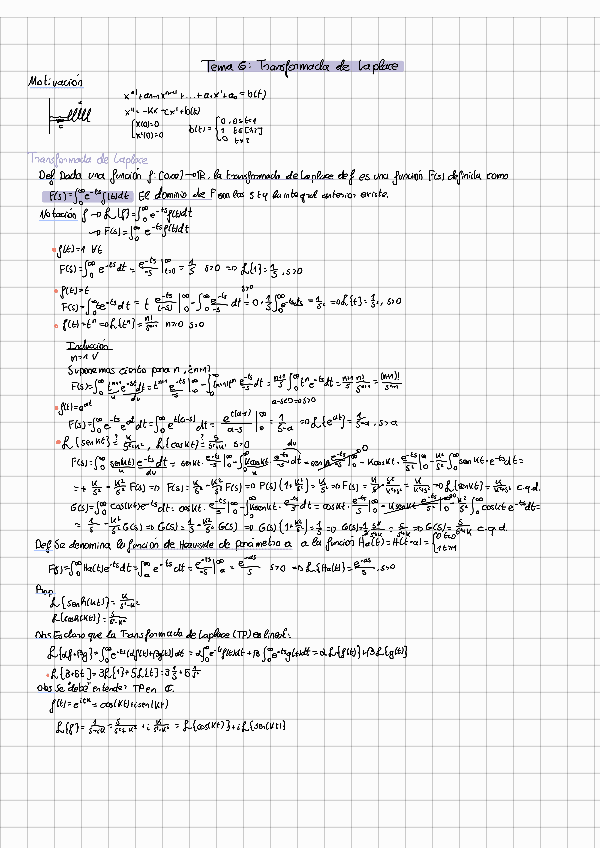 Tema 6: Transformada de Laplace
Motivación
x^(n) + a_{n-1} x^{n-1} + ... + a_1 x' + a_0 = b(t)
x'' = -kx - cx' + b(t)
{ x(0)=0
x'(0)=0
b(t) = { 0, 0≤t<1
1 t∈[1,2]
0 t>2
Transformada de Laplace
Def Dada una función f: [0,∞) → ℝ, la transformada de Laplace de f es una función F(s) definida como
F(s) = ∫_0^∞ e^{-ts} f(t) dt El dominio de F son los s tq la integral anterior existe.
Notación f → L{f} = ∫_0^∞ e^{-ts} f(t) dt
→ F(s) = ∫_0^∞ e^{-ts} f(t) dt
• f(t)=1 ∀t
F(s) = ∫_0^∞ e^{-ts} dt = e^{-ts}/-s |_{t=0}^∞ = 1/s s>0 ⇒ L{1} = 1/s, s>0
• f(t)=t
F(s) = ∫_0^∞ t e^{-ts} dt = t e^{-ts}/(-s) |_0^∞ - ∫_0^∞ e^{-ts}/-s dt = 0 + 1/s ∫_0^∞ e^{-ts} dt = 1/s² ⇒ L{t} = 1/s², s>0
• f(t)=t^n ⇒ L{t^n} = n!/s^{n+1} n≥0 s>0
Inducción
n=1 V
Suponemos cierto para n, ¿n+1?
F(s) = ∫_0^∞ t^{n+1} e^{-st} dt = t^{n+1} e^{-ts}/-s |_0^∞ - ∫_0^∞ (n+1)t^n e^{-ts}/-s dt = n+1/s ∫_0^∞ t^n e^{-ts} dt = n+1/s n!/s^{n+1} = (n+1)!/s^{n+2}
• f(t)=e^{at}
a-s<0 ⇒ s>a
F(s) = ∫_0^∞ e^{-ts} e^{at} dt = ∫_0^∞ e^{t(a-s)} dt = e^{t(a-s)}/a-s |_0^∞ = 1/s-a ⇒ L{e^{at}} = 1/s-a, s>a
• L{sen kt} ?= k/s²+k², L{cos kt} ?= s/s²+k², s>0
F(s) = ∫_0^∞ sen(kt) e^{-ts} dt = sen kt · e^{-ts}/-s |_0^∞ - ∫_0^∞ k cos kt e^{-ts}/-s dt
= + k/s² - k²/s² F(s) ⇒ F(s) = k/s² - k²/s² F(s) ⇒ F(s)(1+k²/s²) = k/s² ⇒ F(s) = k/s² · s²/s²+k² = k/s²+k² ⇒ L{sen kt} = k/s²+k² c.q.d.
G(s) = ∫_0^∞ cos(kt) e^{-ts} dt = cos kt · e^{-ts}/-s |_0^∞ - ∫_0^∞
= 1/s - k²/s² G(s) ⇒ G(s) = 1/s - k²/s² G(s) ⇒ G(s)(1+k²/s²) = 1/s ⇒ G(s) = 1/s ⇒ G(s) = c.q.d.
Def Se denomina la función de Heaviside de parámetro a a la función Ha(t) = H(t-a) = { 0 t<a
1 t>a
F(s) = ∫_0^∞ Ha(t) e^{-ts} dt = ∫_a^∞ e^{-ts} dt = e^{-ts}/-s |_a^∞ = e^{-as}/s s>0 ⇒ L{Ha(t)} = e^{-as}/s, s>0
Prop
L{senh(kt)} = k/s²-k²
L{cosh(kt)} = s/s²-k²
Obs Es claro que la Transformada de Laplace (TP) es lineal:
L{αf+βg} = ∫_0^∞ e^{-ts}(αf(t)+βg(t)) dt = α∫_0^∞ e^{-ts} f(t) dt + β∫_0^∞ e^{-ts} g(t) dt = αL{f(t)} + βL{g(t)}
• L{3+5t} = 3L{1} + 5L{t} = 3 1/s + 5 1/s²
Obs Se "debe" entender TP en ℂ.
f(t) = e^{itk} = cos(kt) + i sen(kt)
L{f} = 1/s-ik = s/s²+k² + i k/s²+k² = L{cos(kt)} + i L{sen(kt)}